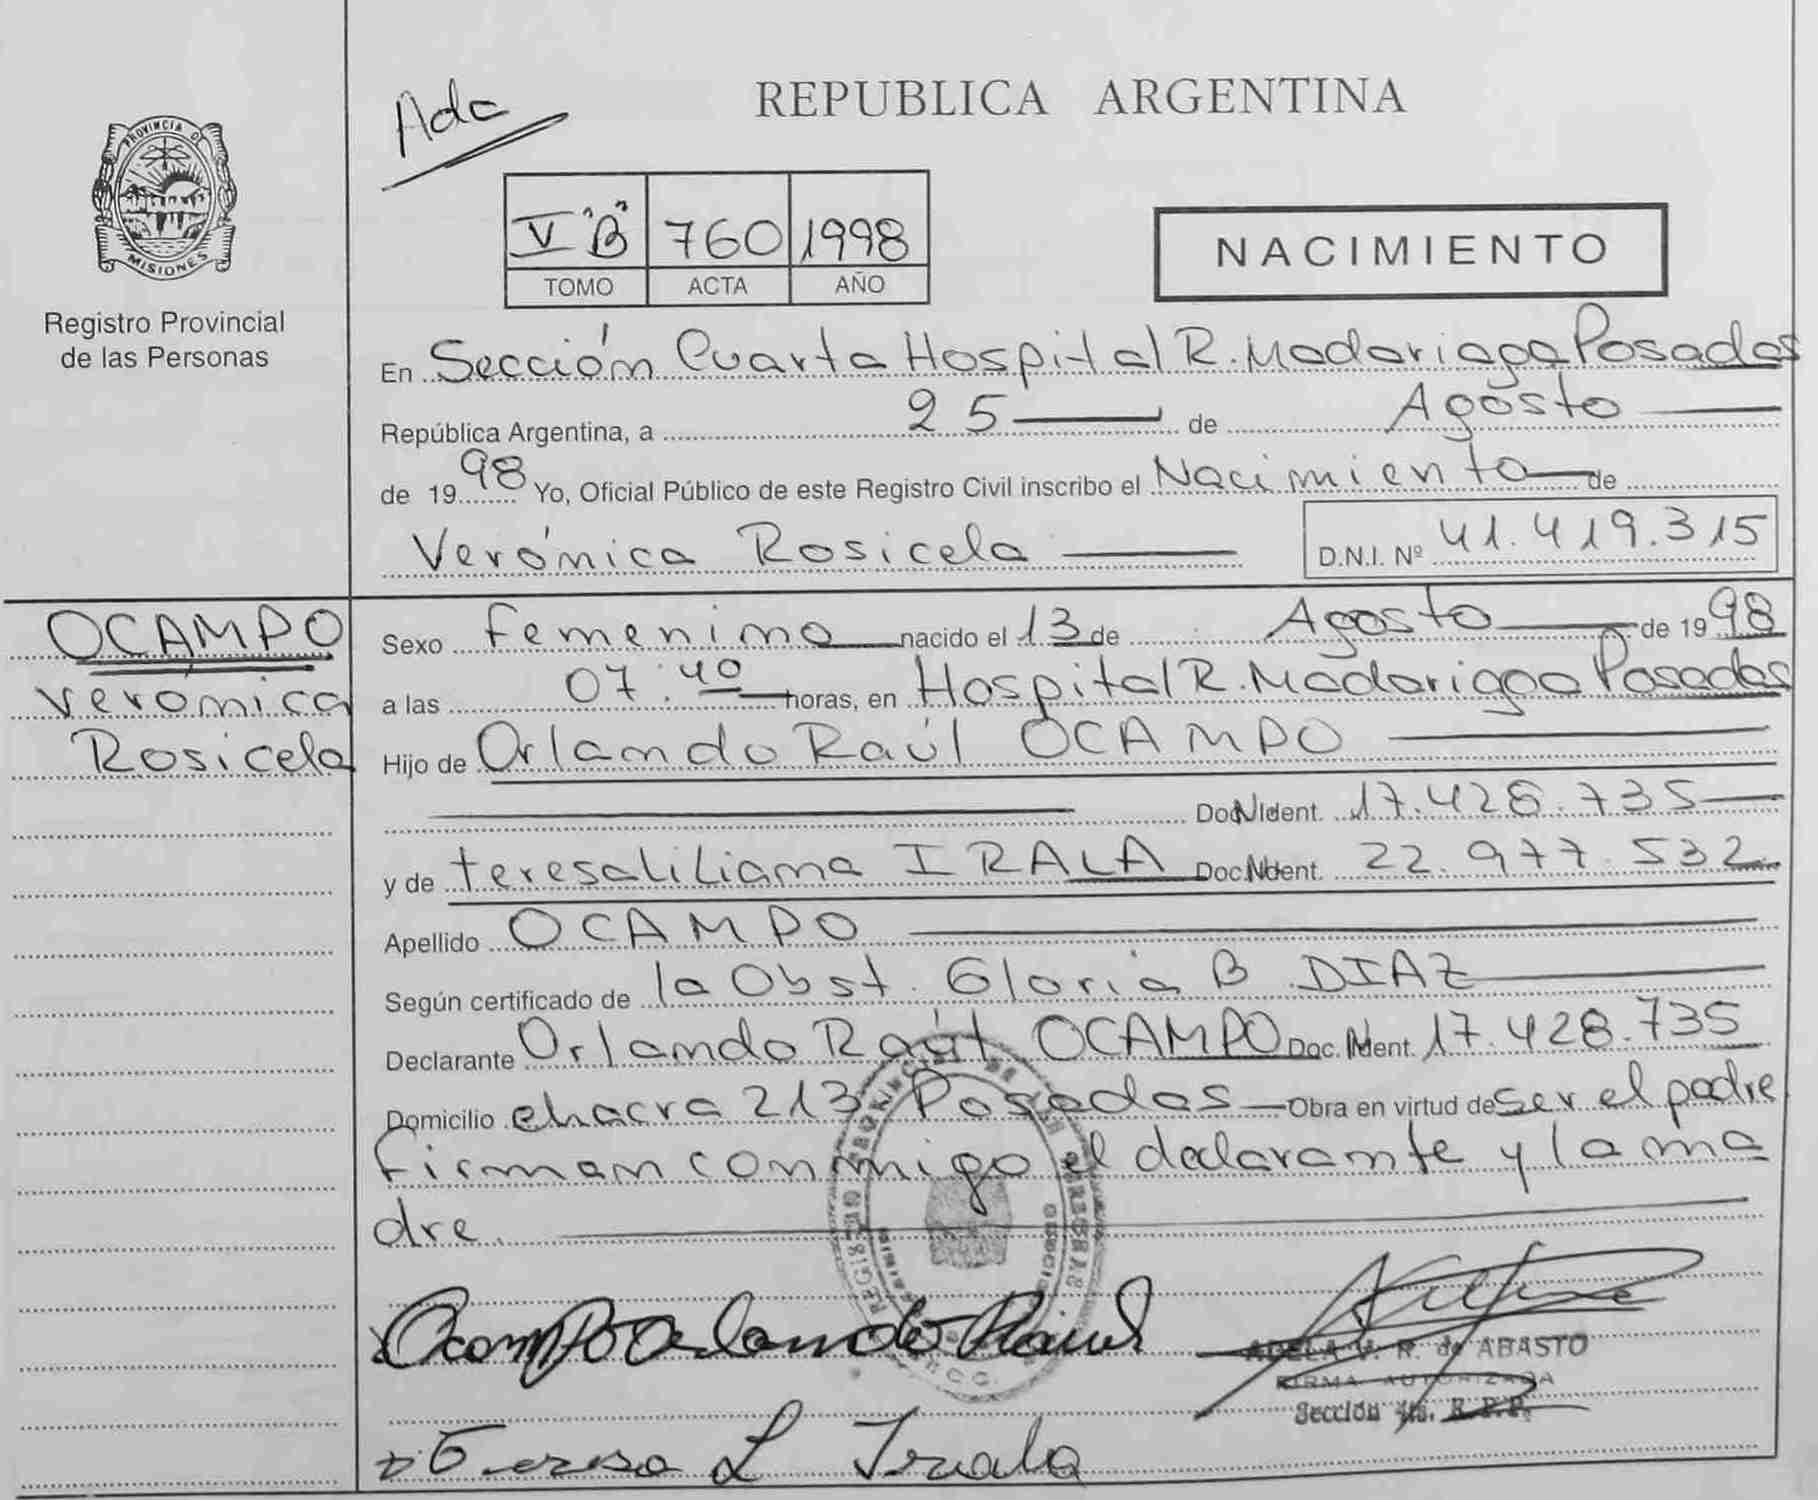 Ada
REPUBLICA ARGENTINA
PROVINCIA DE
MISIONES
Registro Provincial
de las Personas
V "B" 760 1998
TOMO ACTA AÑO
NACIMIENTO
En Sección Cuarta Hospital R. Madariaga Posadas
República Argentina, a 25 de Agosto
de 1998 Yo, Oficial Público de este Registro Civil inscribo el Nacimiento de
Verónica Rosicela D.N.I. Nº 41.419.315
OCAMPO
Verónica
Rosicela
Sexo femenino nacido el 13 de Agosto de 1998
a las 07:40 horas, en Hospital R. Madariaga Posadas
Hijo de Orlando Raúl OCAMPO
Doc. Ident. 17.428.735
y de teresa liliana IRALA Doc. Ident. 22.977.532
Apellido OCAMPO
Según certificado de la Obst. Gloria B DIAZ
Declarante Orlando Raúl OCAMPO Doc. Ident. 17.428.735
Domicilio chacra 213 Posadas Obra en virtud de ser el padre
firman conmigo el declarante y la ma
dre.
Ocampo Orlando Raul
ADELA V. R. de ABASTO
FIRMA AUTORIZADA
Sección 4ta. R.P.P.
Teresa L Irala